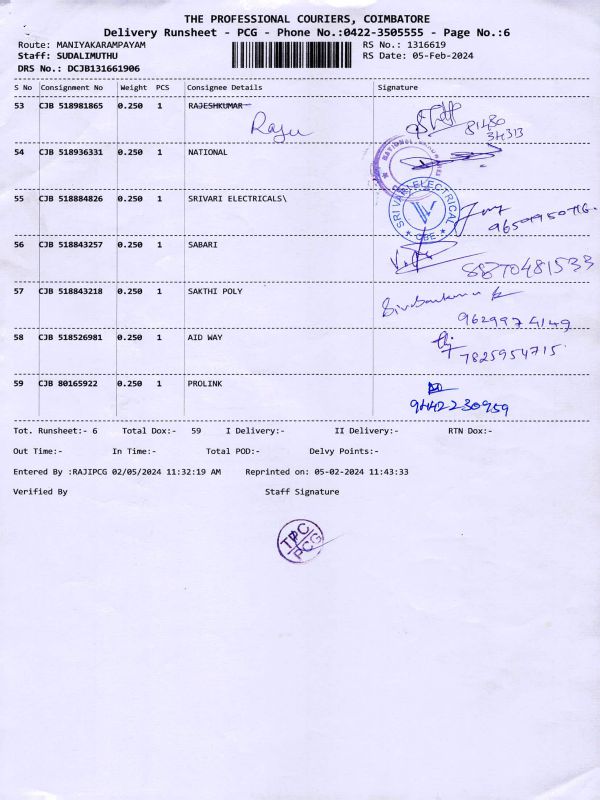 THE PROFESSIONAL COURIERS, COIMBATORE
Delivery Runsheet - PCG - Phone No.:0422-3505555 - Page No.:6
Route: MANIYAKARAMPAYAM RS No.: 1316619
Staff: SUDALIMUTHU RS Date: 05-Feb-2024
DRS No.: DCJB131661906
S No Consignment No Weight PCS Consignee Details Signature
53 CJB 518981865 0.250 1 RAJESHKUMAR
Raju 81480
34313
54 CJB 518936331 0.250 1 NATIONAL
NATIONAL
55 CJB 518884826 0.250 1 SRIVARI ELECTRICALS\
SRIVARI ELECTRICAL
CBE
56 CJB 518843257 0.250 1 SABARI
8870481533
57 CJB 518843218 0.250 1 SAKTHI POLY
9629974149
58 CJB 518526981 0.250 1 AID WAY
7825954715.
59 CJB 80165922 0.250 1 PROLINK
9442230959
Tot. Runsheet:- 6 Total Dox:- 59 I Delivery:- II Delivery:- RTN Dox:-
Out Time:- In Time:- Total POD:- Delvy Points:-
Entered By :RAJIPCG 02/05/2024 11:32:19 AM Reprinted on: 05-02-2024 11:43:33
Verified By Staff Signature
TPC
PCG